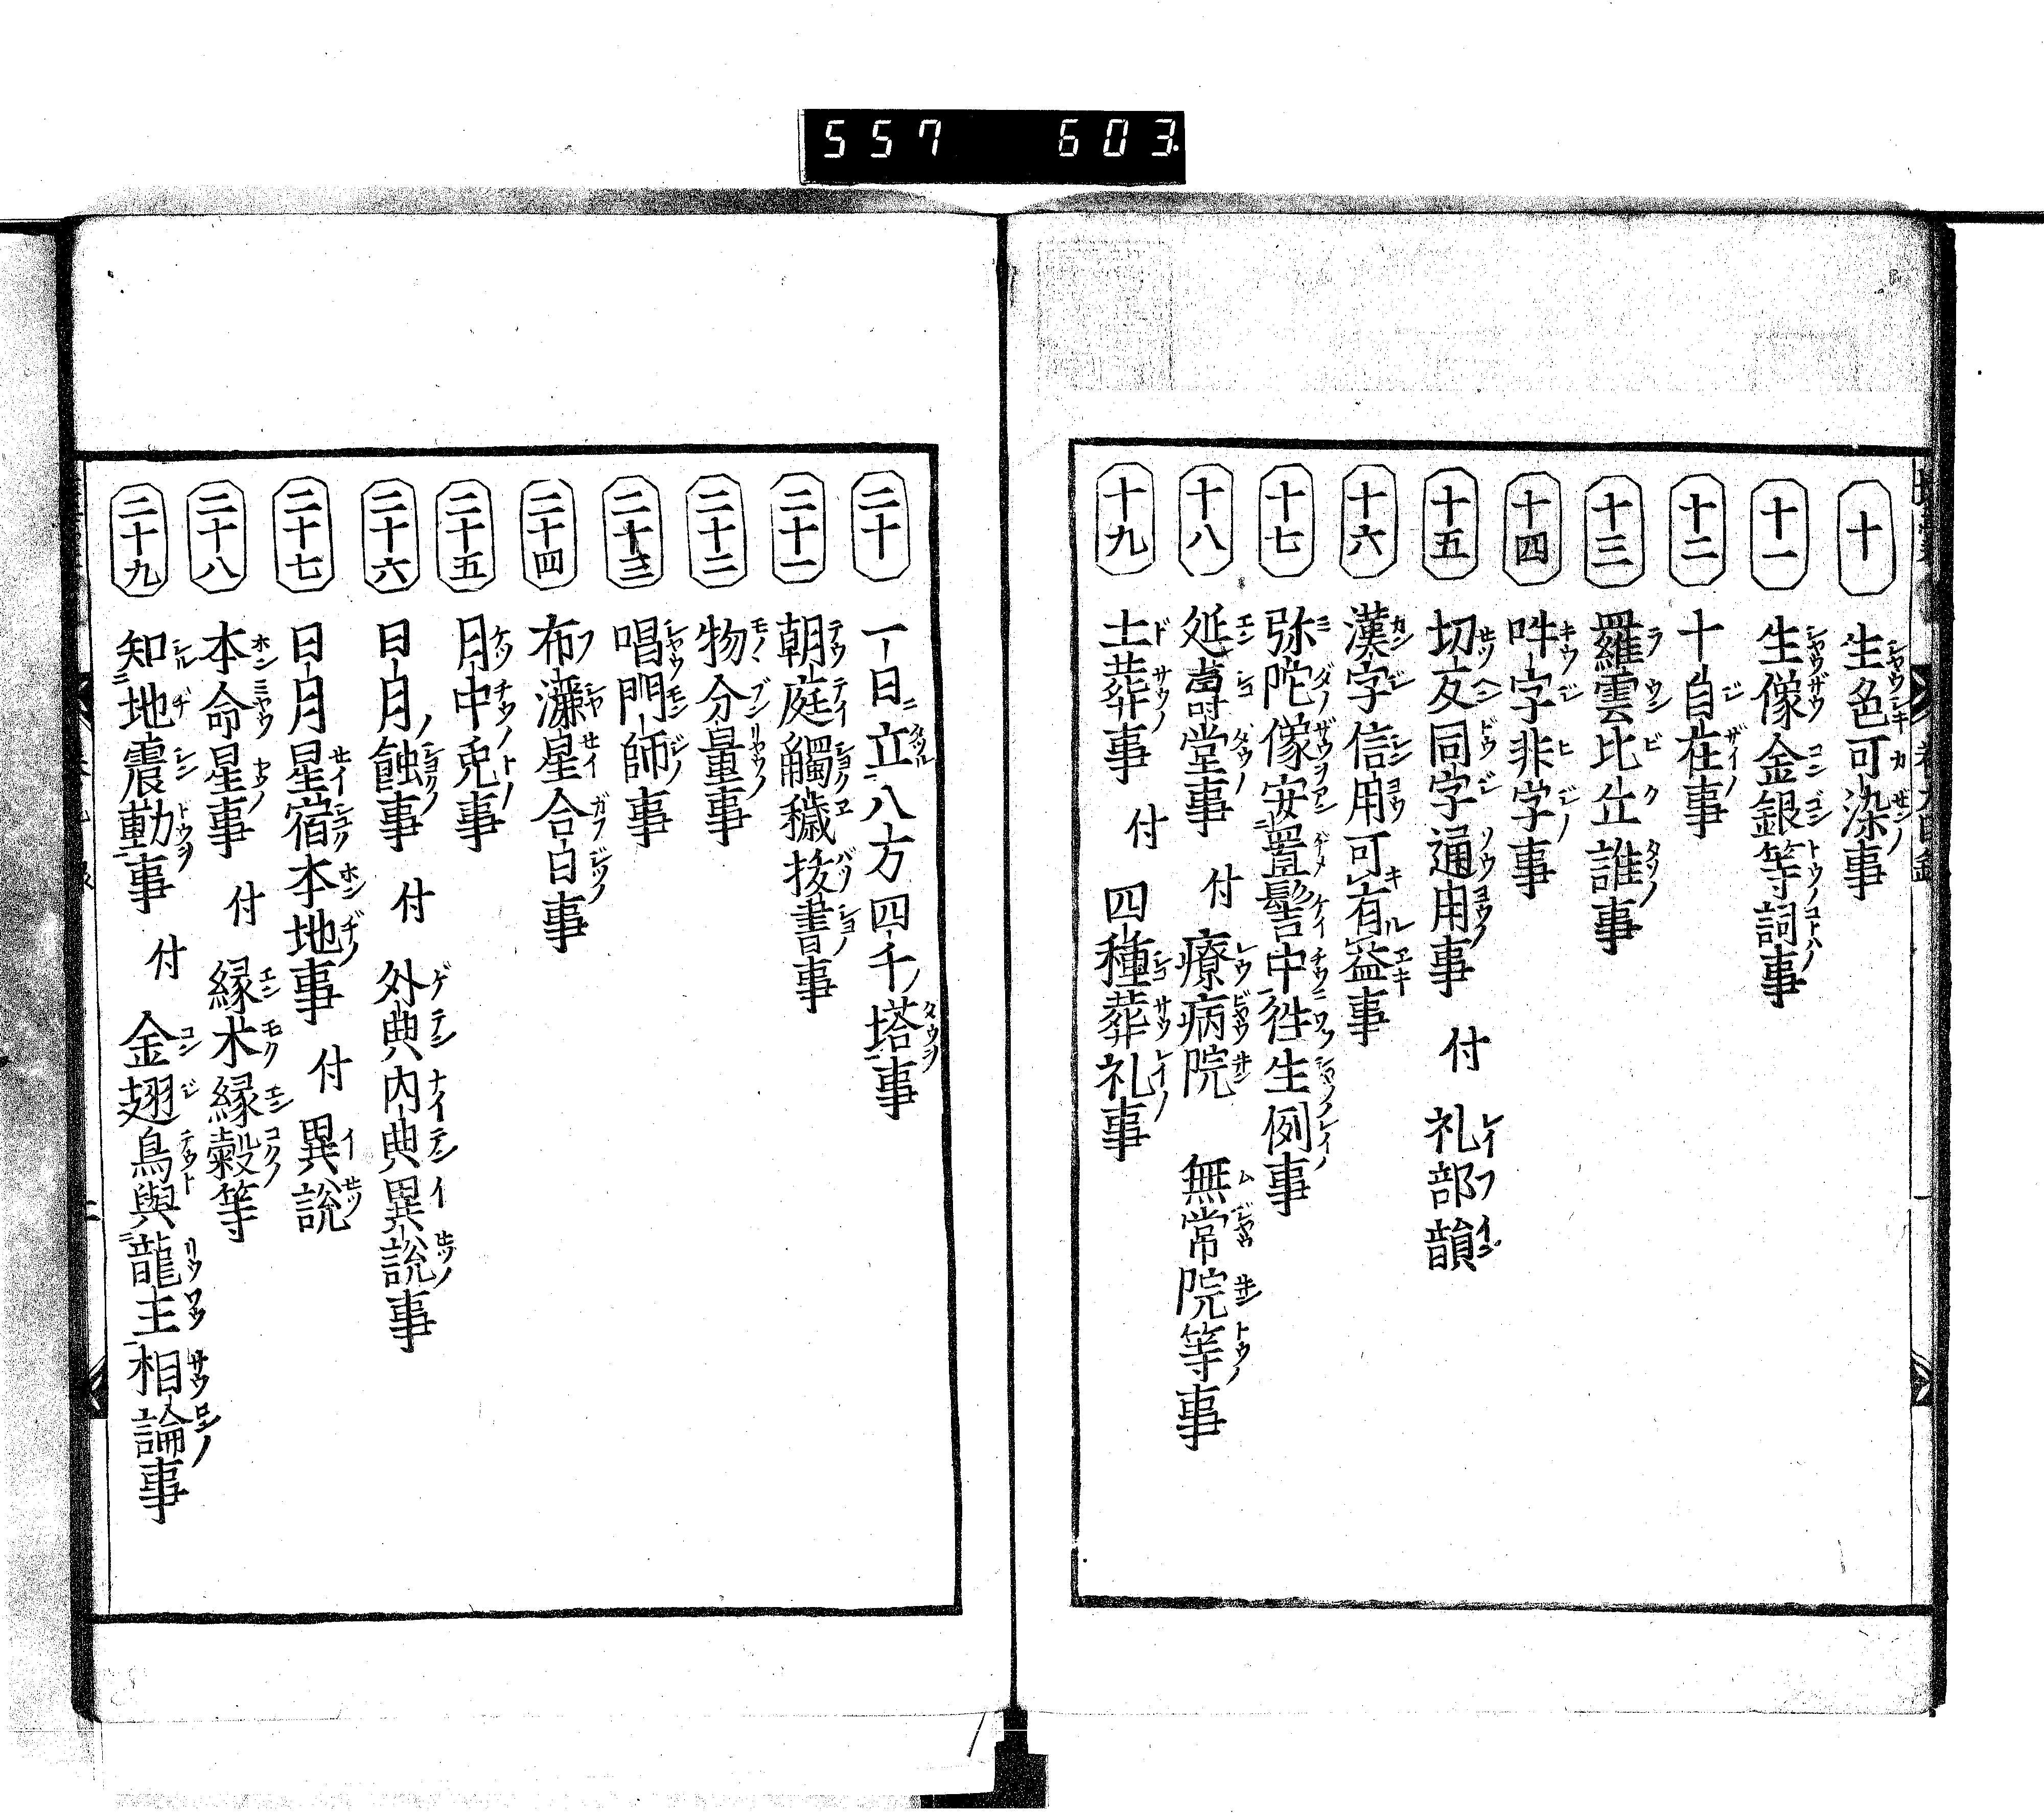 557 603
十 生色可染事
十一 生像金銀等詞事
十二 十自在事
十三 羅雲比丘誰事
十四 吽字非字事
十五 切反同字通用事 付 礼部韻
十六 漢字信用可有益事
十七 弥陀像安置髻中徃生例事
十八 延壽堂事 付 療病院 無常院等事
十九 土葬事 付 四種葬礼事
二十 一日立八方四千塔事
二十一 朝庭觸穢拔書事
二十二 物分量事
二十三 唱門師事
二十四 布灑星合日事
二十五 月中兎事
二十六 日月蝕事 付 外典内典異説事
二十七 日月星宿本地事 付 異説
二十八 本命星事 付 縁木縁穀等
二十九 知地震動事 付 金翅鳥與龍王相論事